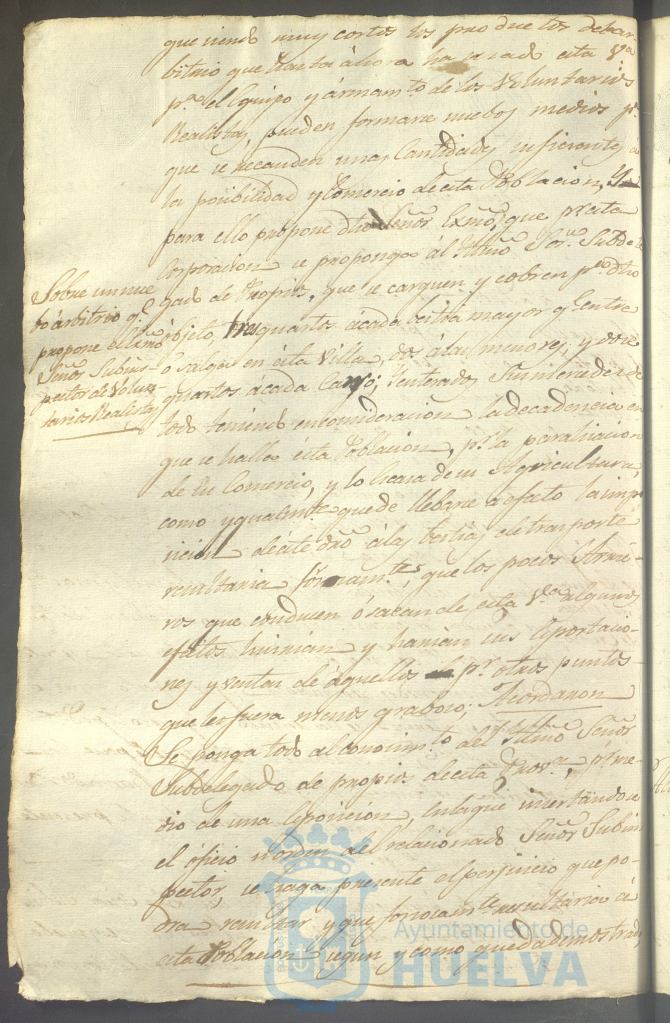 que siendo muy cortos los productos del ar-
bitrio que hasta ahora ha usado esta V.ª
p.ª el Equipo y armam.to de los Voluntarios
Realistas, pueden formarse nuebos medios p.r
que se recauden unas Cantidades suficientes a
la posibilidad y Comercio de esta Poblacion, y
para ello propone dho Señor Exmo, que p.r esta
Corporacion se proponga al Illmo Sor. Subdele-
gado de Propios, que se carguen y cobren p.ª dho
objeto, tres quartos á cada bestia mayor q.e entre
ó salga en esta Villa, dos á las menores, y doce
quartos á cada Carro; Enterados Sus mercedes de
todo teniendo en consideracion la decadencia en
que se halla esta Poblacion, p.r la paralizacion
de su Comercio, y lo escasa de su Agricultura,
como ygualmente que de llebarse a efecto la impo-
sicion de este dro á las bestias de trasporte
resultaria que los pocos Arrie-
ros que conducen ó sacan de esta V.ª algunos
efectos huirian y harian sus Esportacio-
nes y ventas de aquellos p.r otros puntos
que les fuera menos graboso; Acordaron
Se ponga todo al conocim.to del Illmo Señor
Subdelegado de propios de esta Prov.ª, p.r me-
dio de una Esposicion, en la que insertandose
el oficio u orden del relacionado Señor Subins-
pector, se haga presente el perjuicio que po-
dra resultar y que forzosam.te resultaria á
esta Poblacion segun y como queda demostrado,
Sobre un nue
bo árbitrio q.e
propone el Exmo
Señor Subins-
pector de Volun-
tarios Realistas
Ayuntamiento de
HUELVA